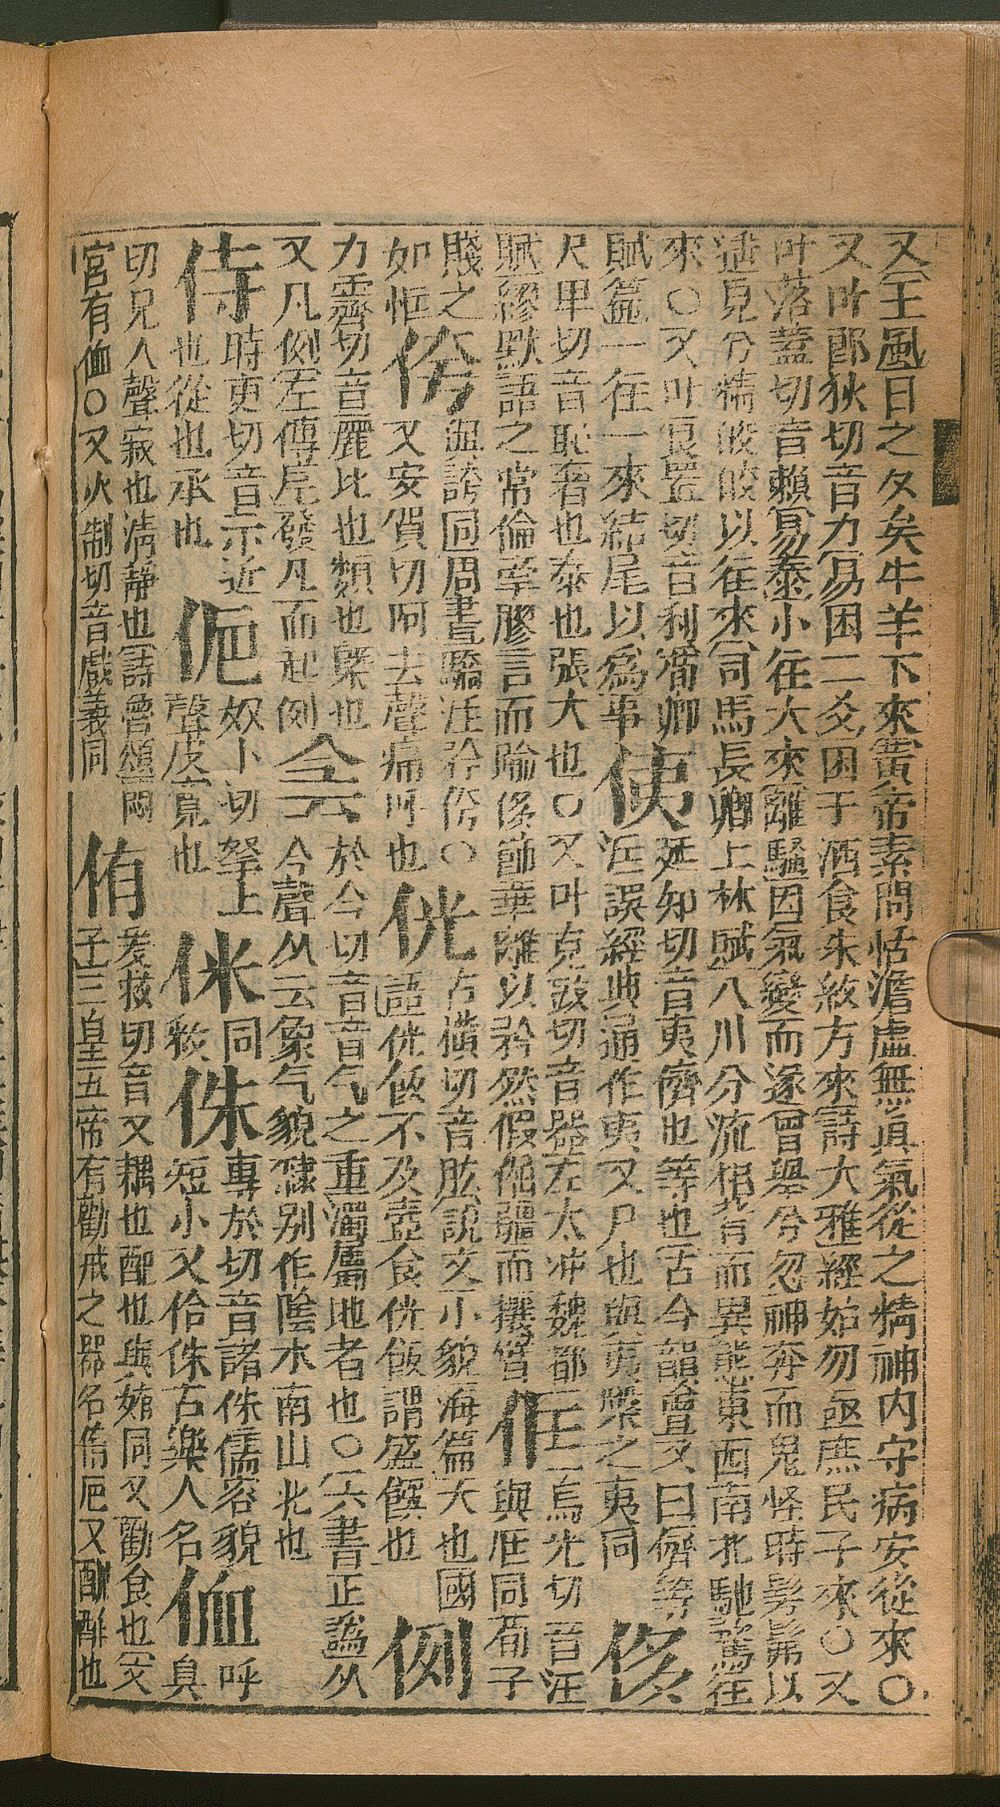 又王風日之夕矣牛羊下來黃帝素問恬澹虛無眞氣從之精神內守病安從來○
又叶郎狄切音力易困二爻困于酒食朱紱方來詩大雅經始勿亟庶民子來○又
叶落蓋切音賴易泰小往大來離騷因氣變而遂曾舉兮忽神奔而鬼怪時髣髴以
遙見兮精皎皎以往來司馬長卿上林賦八川分流相背而異態東西南北馳騖往
來○又叶良置切音利荀卿
賦篇一往一來結尾以爲事 侇 延知切音夷儕也等也古今韻會又曰儕等
註誤經典通作夷又尸也與夷槃之夷同 侈
尺里切音恥奢也泰也張大也○又叶充豉切音器左太冲魏都
賦繆默語之常倫牽膠言而踰侈飾華離以矜然假倔彊而攘臂 㑌 王烏光切音汪
與尪同荀子
賤之
如㑌 侉 與誇同周書驕淫矜侉○
又安賀切阿去聲痛呼也 侊 古橫切音肱說文小貌海篇大也國
語侊飯不及壺食侊飯謂盛饌也 例
力霽切音麗比也類也槩也
又凡例左傳序發凡而起例 侌 於今切音音气之重濁屬地者也○六書正譌从
今聲从云象气貌隸別作陰水南山北也
侍 時吏切音示近
也從也承也 㑚 奴卜切拏上
聲皮寬也 侎 同
敉 侏 專於切音諸侏儒容貌
短小又佁侏古樂人名 侐 呼
臭
切兄入聲寂也淸靜也詩魯頌閟
宮有侐○又火制切音戲義同 侑 爰救切音又耦也配也與姷同又勸食也文
子三皇五帝有勸戒之器名侑卮又酬酢也